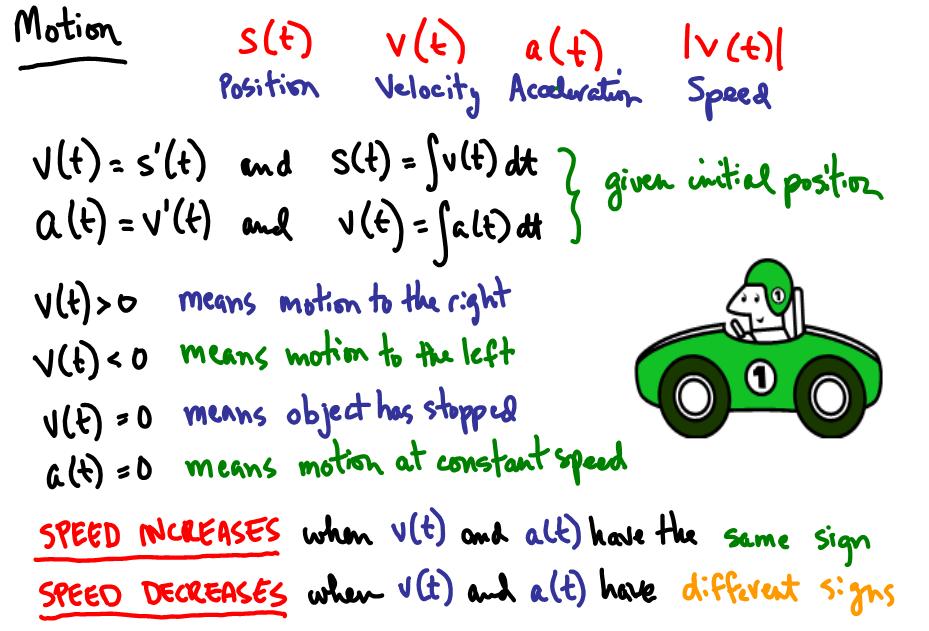 Motion
s(t) v(t) a(t) |v(t)|
Position Velocity Acceleration Speed
v(t) = s'(t) and s(t) = ∫v(t) dt
a(t) = v'(t) and v(t) = ∫a(t) dt
} given initial position
v(t) > 0 means motion to the right
v(t) < 0 means motion to the left
v(t) = 0 means object has stopped
a(t) = 0 means motion at constant speed
1
1
SPEED INCREASES when v(t) and a(t) have the same sign
SPEED DECREASES when v(t) and a(t) have different signs